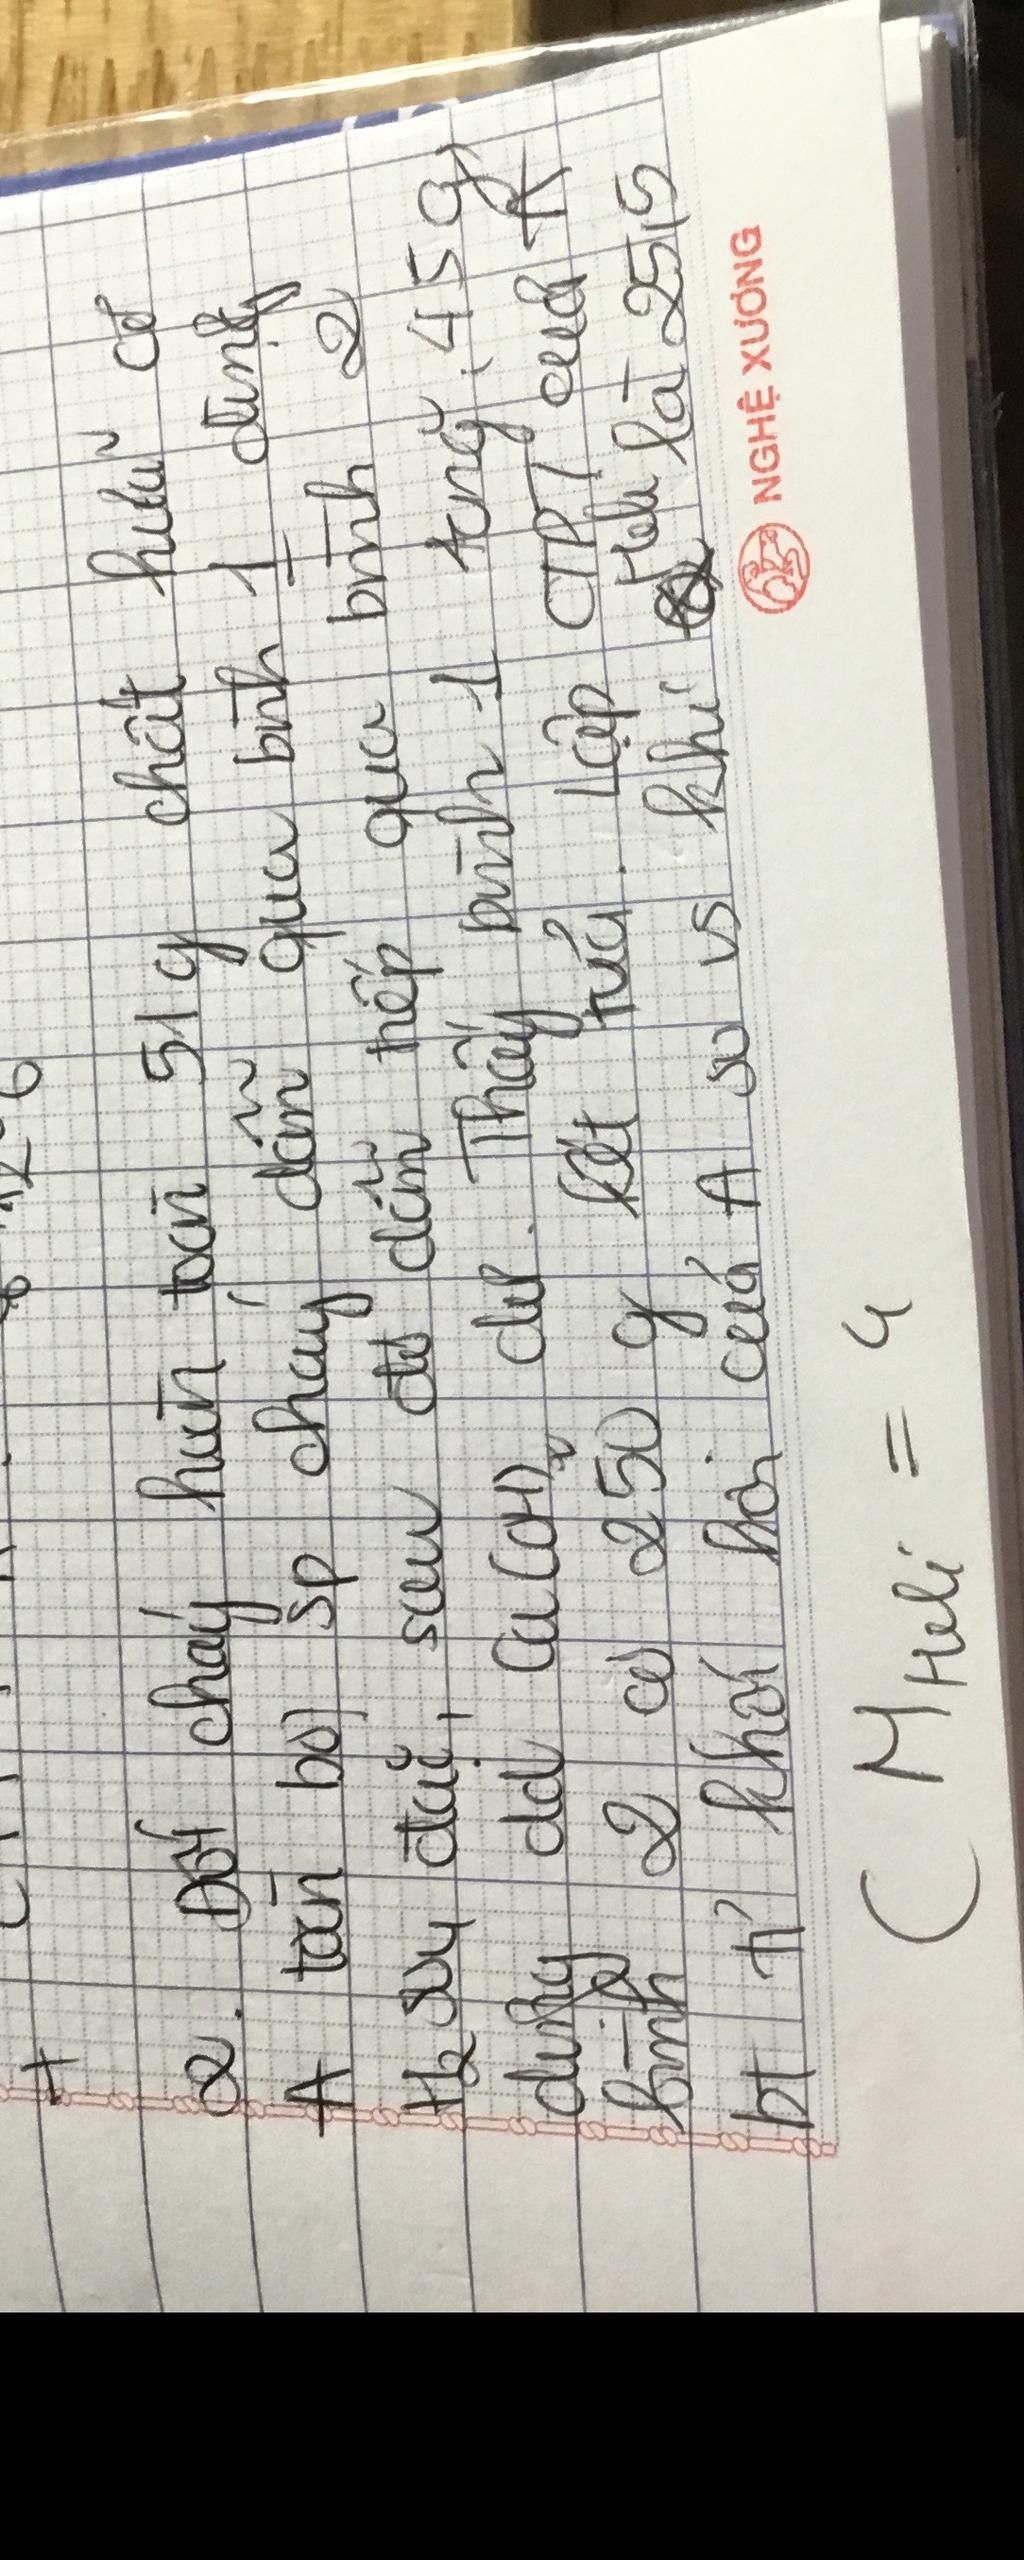 2. Đốt cháy hoàn toàn 51 g chất hữu cơ
A toàn bộ sp cháy dẫn qua bình 1 đựng
H2SO4 đặc, sau đó dẫn tiếp qua bình 2
đựng dd Ca(OH)2 dư. Thấy bình 1 tăng 45 g,
bình 2 có 250 g kết tủa. Lập CTPT của A
bt tỉ khối hơi của A so vs khí Heli là 25,5
NGHỆ XƯƠNG
( M Heli = 4